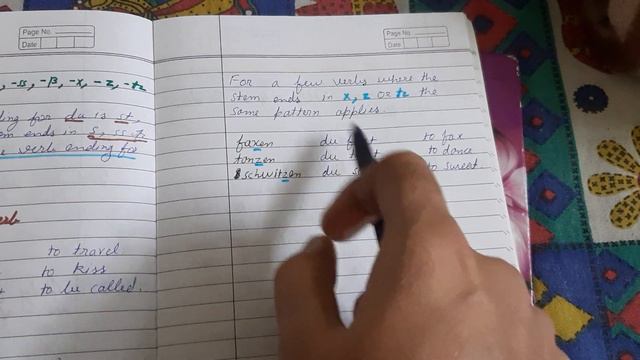 Page No.
Date
-ss, -β, -x, -z, -tz
ing for du is st,
ends in s, ss,
verb ending for
to travel
to kiss
to be called.
Page No.
Date
For a few verbs where the
stem ends in x, z or tz the
same pattern applies.
faxen du to fax
tanzen du to dance
schwitzen du to sweet